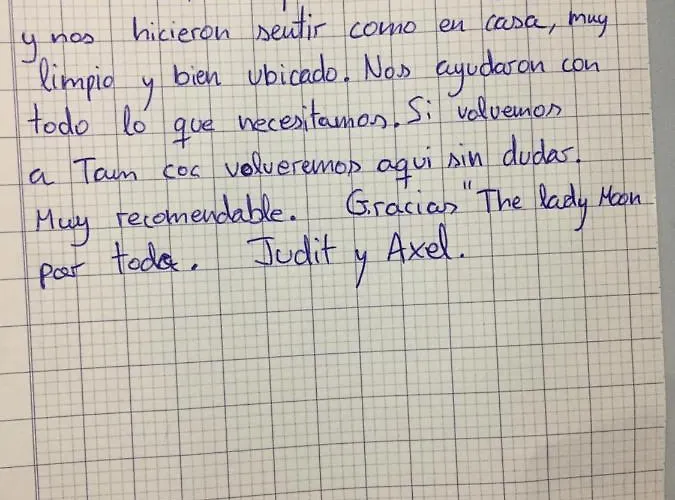 y nos hicieron sentir como en casa, muy
limpio y bien ubicado. Nos ayudaron con
todo lo que necesitamos. Si volvemos
a Tam coc volveremos aqui sin dudas.
Muy recomendable. Gracias "The lady Moon
por todo. Judit y Axel.